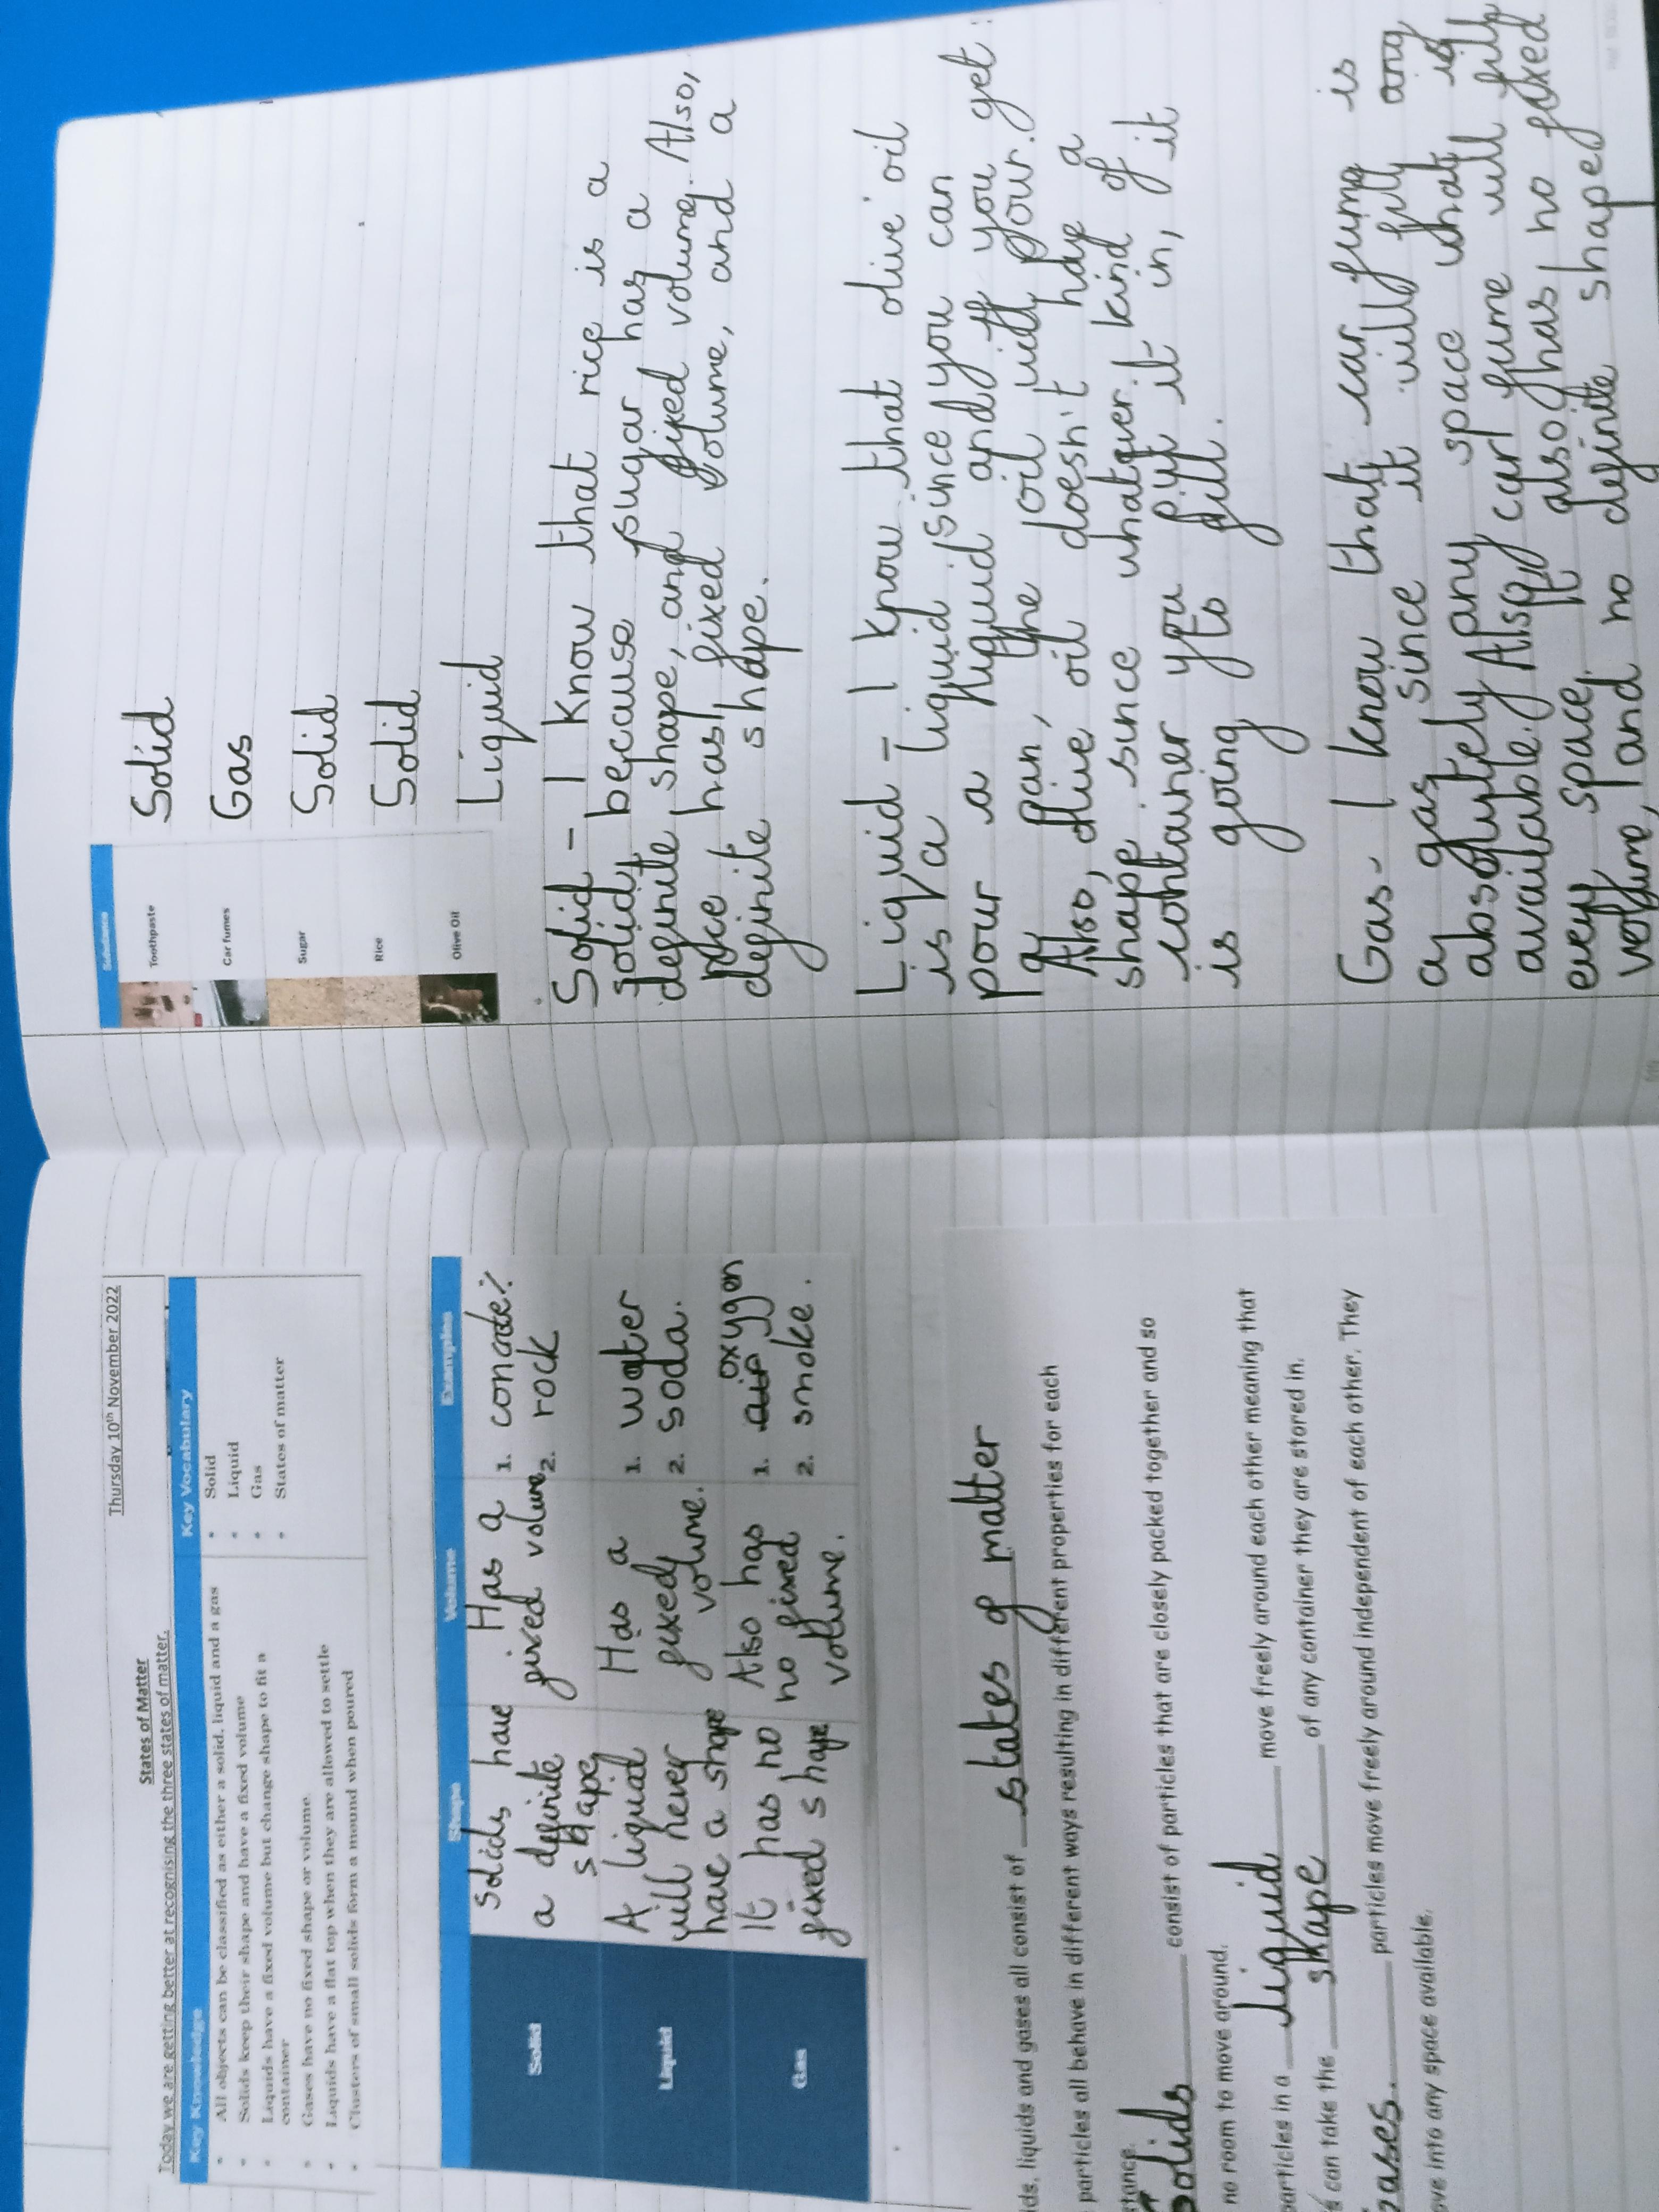 Thursday 10th November 2022
States of Matter
Today we are getting better at recognising the three states of matter.
Key Knowledge Key Vocabulary
• All objects can be classified as either a solid, liquid and a gas
• Solids keep their shape and have a fixed volume
• Liquids have a fixed volume but change shape to fit a
container
• Gases have no fixed shape or volume.
• Liquids have a flat top when they are allowed to settle
• Clusters of small solids form a mound when poured
• Solid
• Liquid
• Gas
• States of matter
Shape Volume Examples
Solid
Solids have
a definite
shape
Has a
fixed volume
1. concrete
2. rock
Liquid
A liquid
will never
have a shape
Has a
fixed
volume.
1. water
2. soda.
Gas
It has no
fixed shape
Also has
no fixed
volume.
1. air oxygen
2. smoke.
ids, liquids and gases all consist of states of matter
particles all behave in different ways resulting in different properties for each
stance.
solids consist of particles that are closely packed together and so
no room to move around.
particles in a liquid move freely around each other meaning that
can take the shape of any container they are stored in.
gases. particles move freely around independent of each other. They
ove into any space available.
Substance
Toothpaste Solid
Car fumes Gas
Sugar Solid
Rice Solid
Olive Oil Liquid
Solid - I know that rice is a
solid, because sugar has a
definite shape, and fixed volume. Also,
rice has fixed volume, and a
definite shape.
Liquid - I know that olive oil
is a liquid since you can
pour a liquid and if you get
a pan, the oil will pour.
Also, olive oil doesn't have a
shape since whatever kind of
container you put it in, it
is going to fill.
Gas - I know that car fume is
a gas since it will fill any
absolutely any space what is
available. Also, car fume will fill
every space. It also has no fixed
volume, and no definite shape